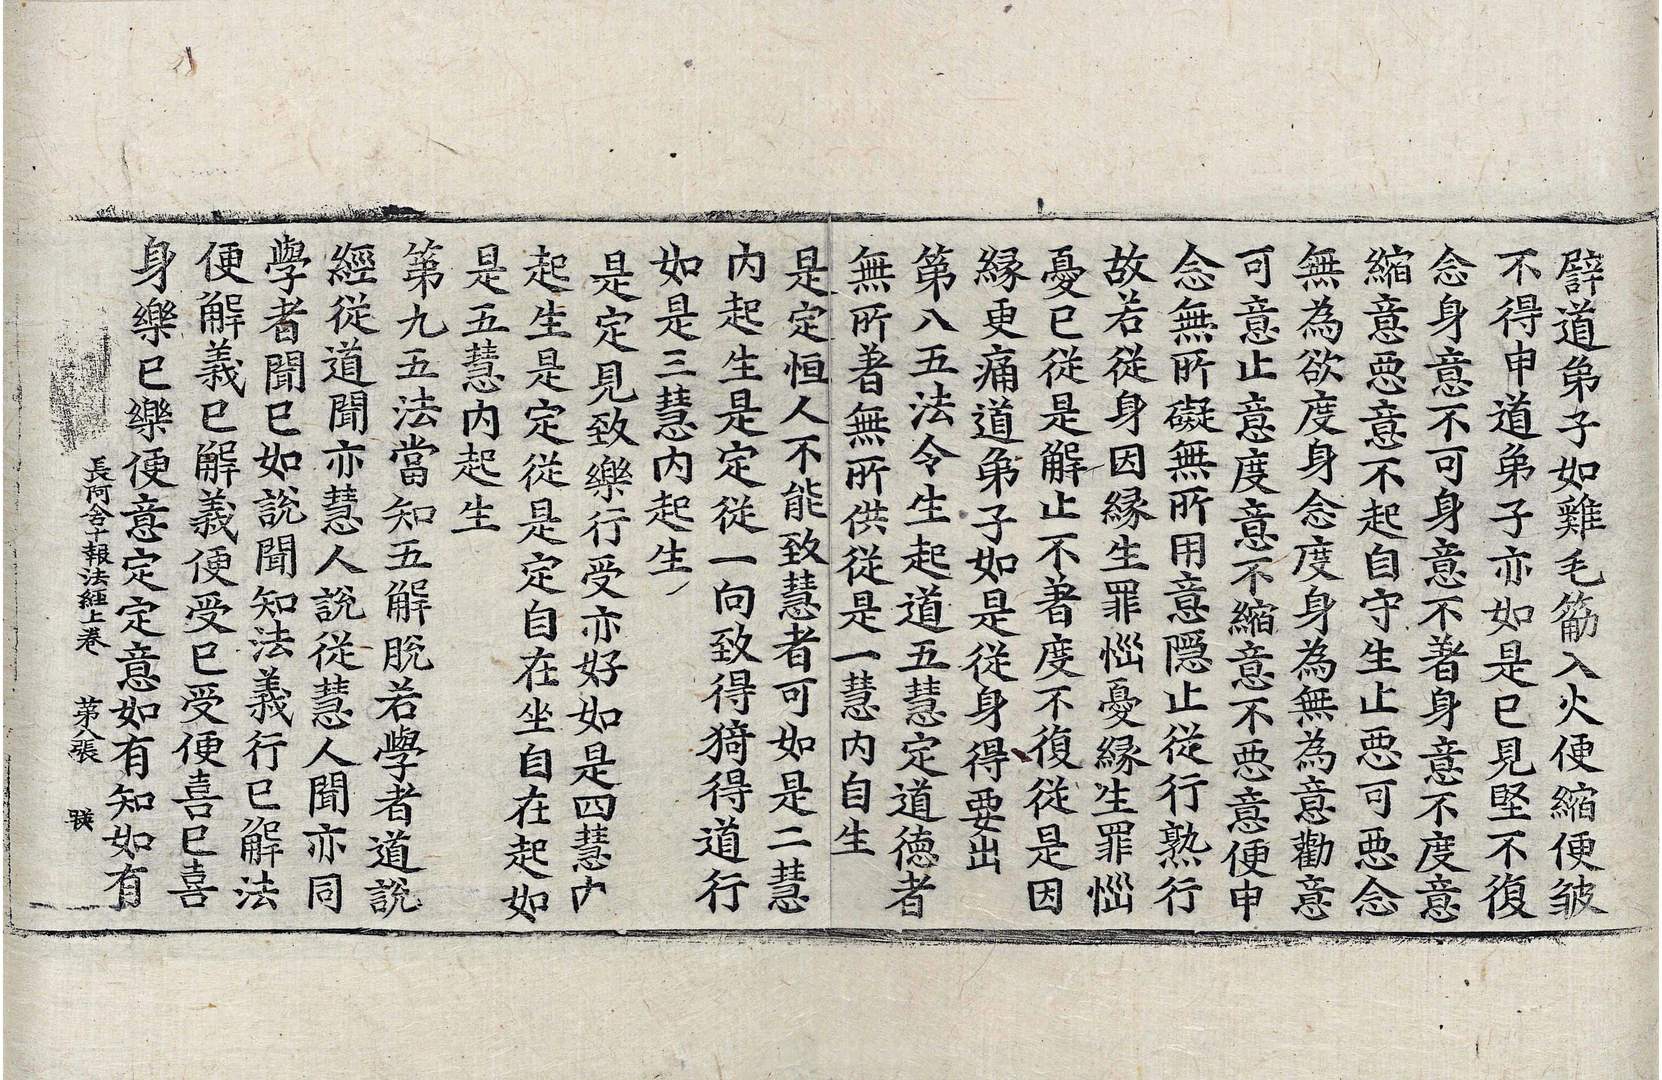 譬道弟子如雞毛筋入火便縮便皺
不得申道弟子亦如是已見堅不復
念身意不可身意不著身意不度意
縮意惡意不起自守生止惡可惡念
無為欲度身念度身為無為意勸意
可意止意度意不縮意不惡意便申
念無所礙無所用意隱止從行熟行
故若從身因緣生罪惱憂緣生罪惱
憂已從是解止不著度不復從是因
緣更痛道弟子如是從身得要出
第八五法令生起道五慧定道德者
無所著無所供從是一慧內自生
是定恒人不能致慧者可如是二慧
內起生是定從一向致得猗得道行
如是三慧內起生
是定見致樂行受亦好如是四慧內
起生是定從是定自在坐自在起如
是五慧內起生
第九五法當知五解脫若學者道說
經從道聞亦慧人說從慧人聞亦同
學者聞已如說聞知法義行已解法
便解義已解義便受已受便喜已喜
身樂已樂便意定定意如有知如有
長阿含十報法經上卷 第八張